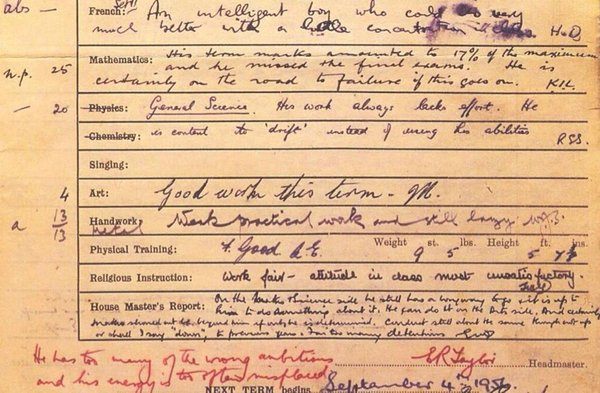 abs — French: An intelligent boy who could do very
much better with a little concentration in class
n.p. 25 Mathematics: His term marks amounted to 17% of the maximum
and he missed the final exams. He is
certainly on the road to failure if this goes on. KIK.
— 20 Physics: General Science. His work always lacks effort. He
Chemistry: is content to 'drift' instead of using his abilities RSS.
Singing:
4 Art: Good work this term - M.
a 13/13 Handwork: Metal Weak practical work and still lazy
Physical Training: F. Good Weight 9 st. 5 lbs. Height 5 ft. 7½ ins.
Religious Instruction: Work fair - attitude in class most unsatisfactory.
House Master's Report: On the side he still has a long way to go & it is up to
him to do something about it. He can do it on the Arts side, and certainly
should not be beyond him if only he is determined. Conduct still about the same
or shall I say "down", to previous years. Far too many detentions
He has too many of the wrong ambitions E.R. Taylor Headmaster.
and his energy is too often misplaced
NEXT TERM begins September 4th 1956